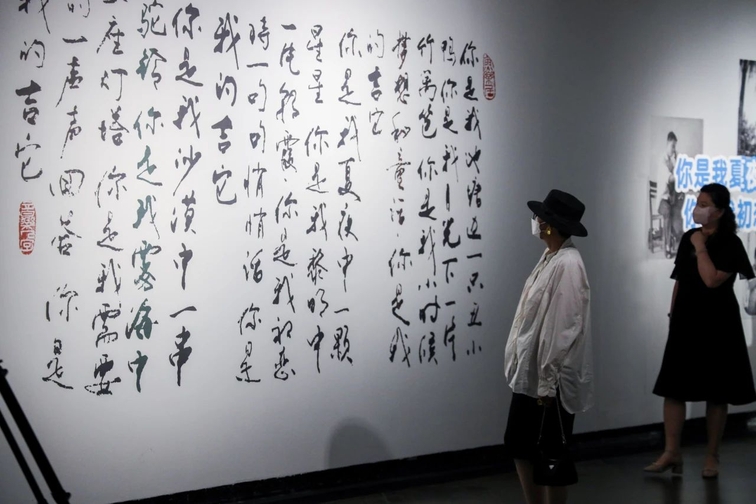 你是我池塘边一只丑小
鸭 你是我月光下一片
竹篱笆 你是我小时候
梦想和童话 你是我
的吉它
你是我夏夜中一颗
星星 你是我黎明中
霞 你是我初恋
时一句句悄悄话 你是
我的吉它
你是我沙漠中一串
驼铃 你是我雾海中
一座灯塔 你是我需要
的一声声回答 你是
我的吉它
你是我夏
初